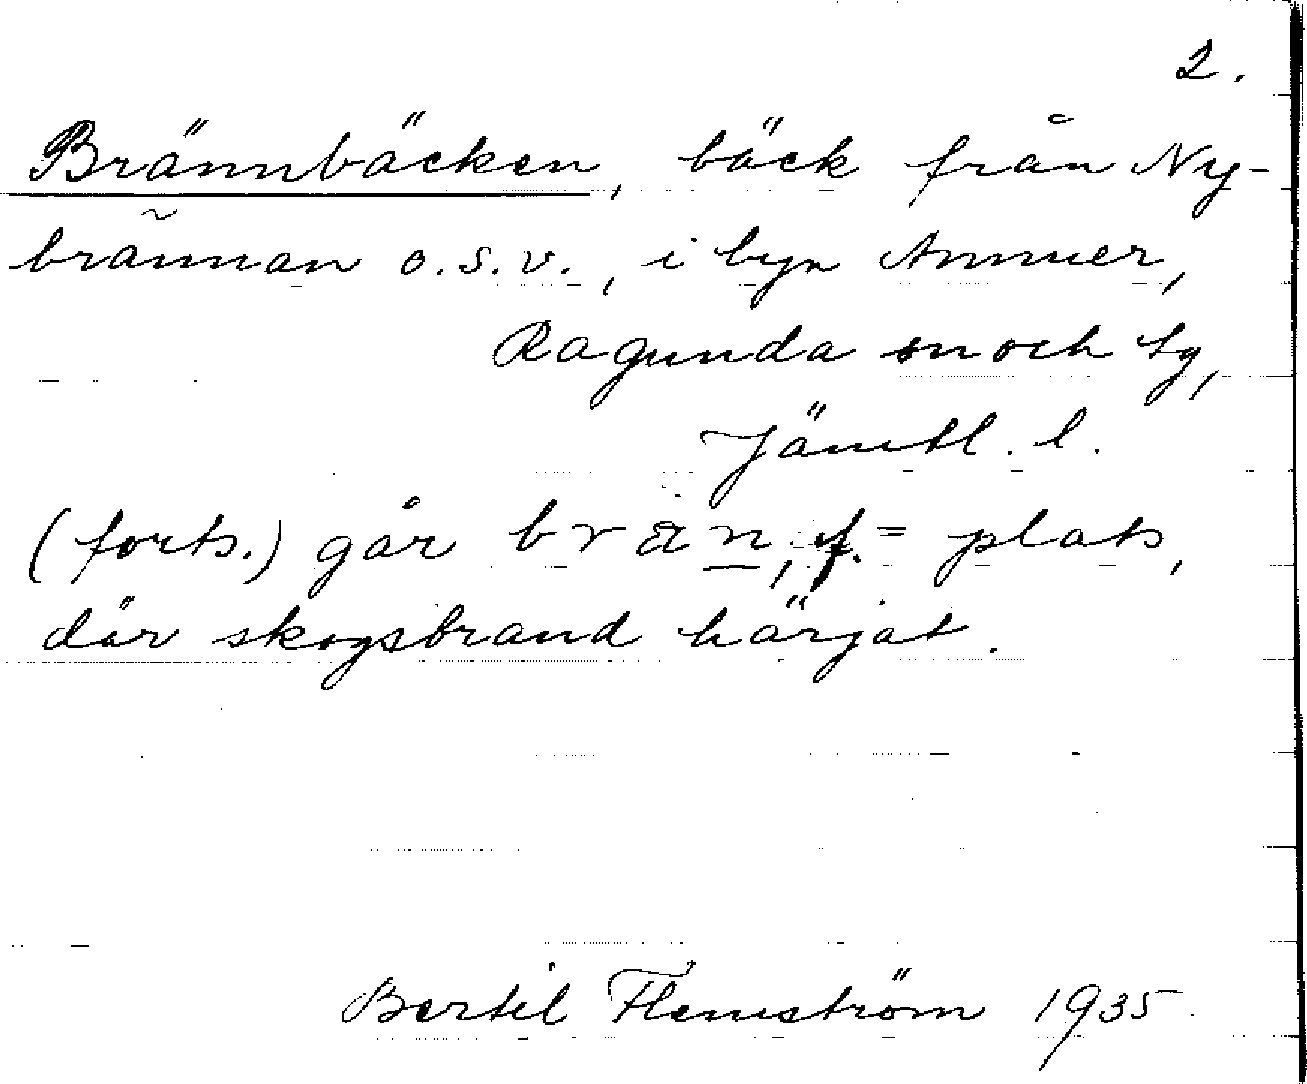 2.
Brännbäcken, bäck från Ny-
brännan o.s.v., i byn Ammer,
Ragunda sn och tg,
Jämtl. l.
(forts.) går bran, f. = plats,
där skogsbrand härjat.
Bertil Flemström 1935